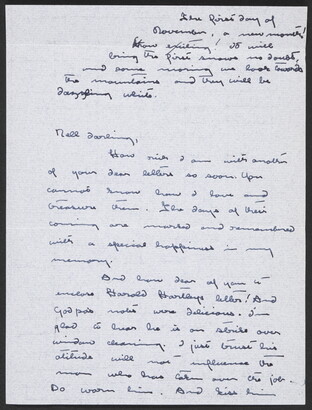 The first day of
November, a new month!
How exciting! It will
bring the first snows no doubt,
and some morning we look towards
the mountains and they will be
dazzling white.
Nell darling,
How rich I am with another
of your dear letters so soon. You
cannot know how I love and
treasure them. The days of their
coming are marked and remembered
with a special happiness in my
memory.
And how dear of you to
enclose Harold Hartleys letter! And
Godpas notes were delicious. I'm
glad to hear he is on strike over
window cleaning. I just trust his
attitude will not influence the
man who has taken over the job.
Do warn him. And kiss him